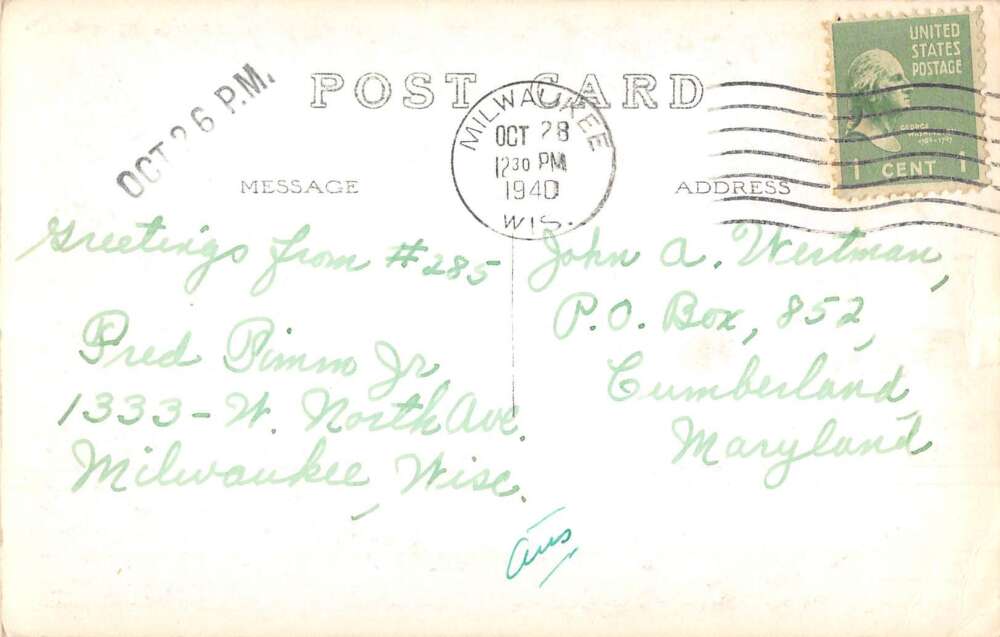 OCT 26 P.M.
POST CARD
MILWAUKEE
OCT 28
12 30 PM
1940
WIS.
UNITED
STATES
POSTAGE
GEORGE
WASHINGTON
1 CENT 1
MESSAGE
ADDRESS
Greetings from #285
Fred Timm Jr
1333-W. North Ave.
Milwaukee, Wisc.
John A. Westman,
P.O. Box, 852,
Cumberland,
Maryland
ans